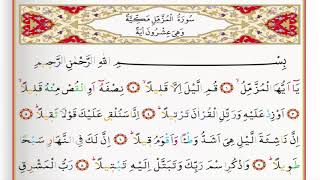 سُورَةُ الْمُزَّمِّلِ مَكِّيَّةٌ
وَهِيَ عِشْرُونَ اٰيَةً
بِسْــمِ اللّٰهِ الرَّحْمٰنِ الرَّحٖيمِ
يَٓا اَيُّهَا الْمُزَّمِّلُۙ قُمِ الَّيْلَ اِلَّا قَلٖيلًاۙ نِصْفَهُٓ اَوِ انْقُصْ مِنْهُ قَلٖيلًاۙ
اَوْ زِدْ عَلَيْهِ وَرَتِّلِ الْقُرْاٰنَ تَرْتٖيلًاؕ اِنَّا سَنُلْقٖي عَلَيْكَ قَوْلًا ثَقٖيلًا
اِنَّ نَاشِئَةَ الَّيْلِ هِيَ اَشَدُّ وَطْـًٔا وَاَقْوَمُ قٖيلًاؕ اِنَّ لَكَ فِي النَّهَارِ سَبْحًا
طَوٖيلًاؕ وَاذْكُرِ اسْمَ رَبِّكَ وَتَبَتَّلْ اِلَيْهِ تَبْتٖيلًاؕ رَبُّ الْمَشْرِقِ